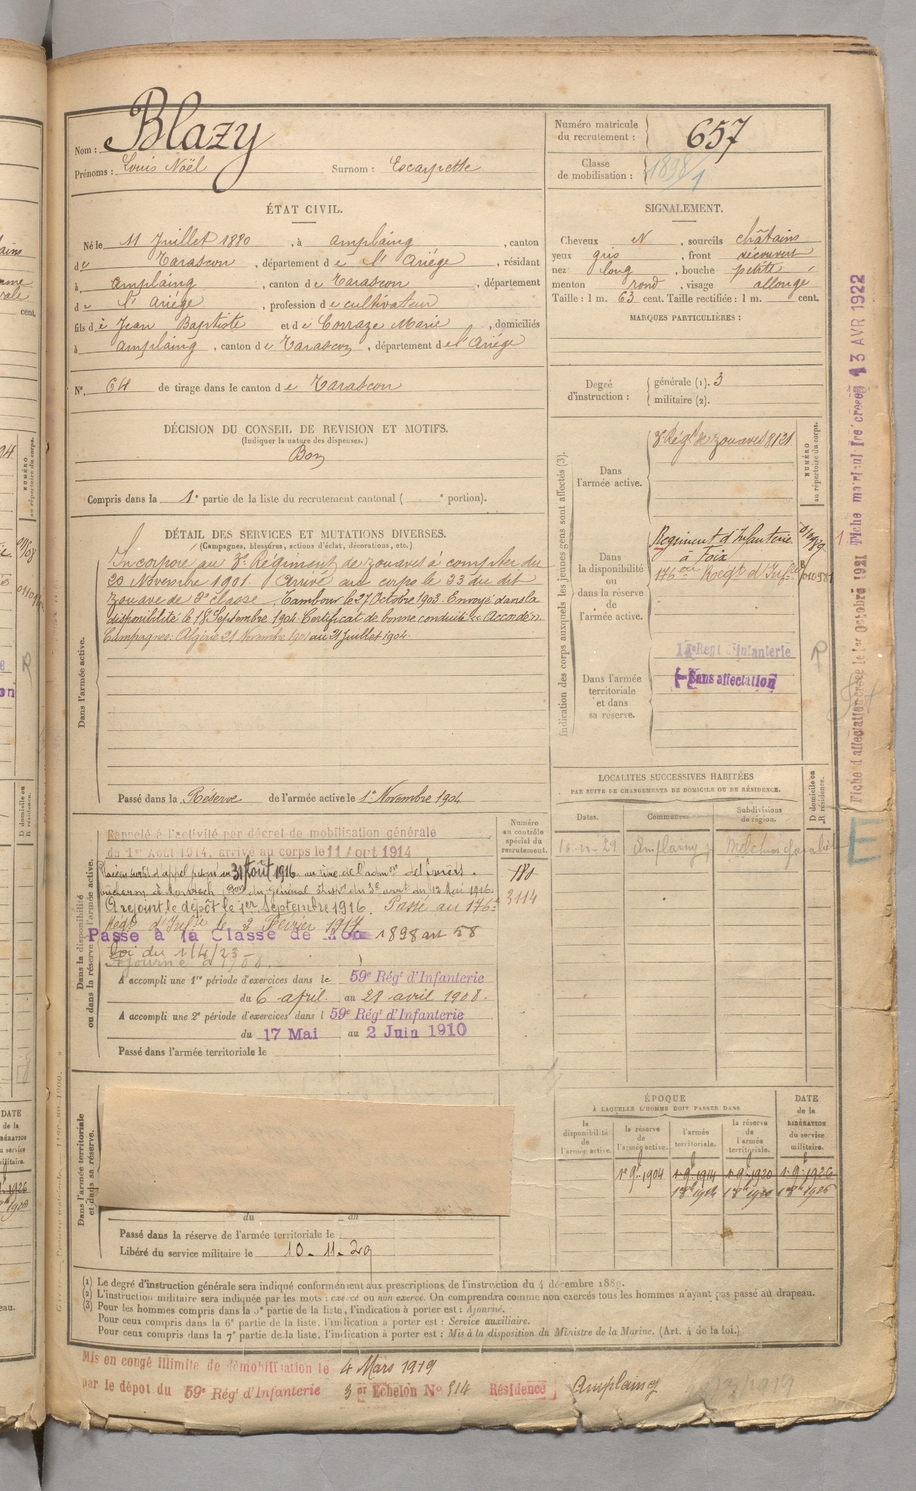 Nom : Blazy
Prénoms : Louis Noël Surnom : Escarpette
Numéro matricule du recrutement : 657
Classe de mobilisation : 1898/1
ÉTAT CIVIL.
Né le 11 Juillet 1880, à Amplaing, canton
de Tarascon, département de l'Ariège, résidant
à Amplaing, canton de Tarascon, département
de l'Ariège, profession de cultivateur
fils de Jean Baptiste et de Corraze Marie, domiciliés
à Amplaing, canton de Tarascon, département de l'Ariège
N° 64 de tirage dans le canton de Tarascon
SIGNALEMENT.
Cheveux N, sourcils châtains
yeux gris, front découvert
nez long, bouche petite
menton rond, visage allongé
Taille : 1 m. 63 cent. Taille rectifiée : 1 m. cent.
MARQUES PARTICULIÈRES :
Degré d'instruction : générale (1). 3
militaire (2).
DÉCISION DU CONSEIL DE REVISION ET MOTIFS.
(Indiquer la nature des dispenses.)
Bon
Compris dans la 1e partie de la liste du recrutement cantonal ( e portion).
DÉTAIL DES SERVICES ET MUTATIONS DIVERSES.
(Campagnes, blessures, actions d'éclat, décorations, etc.)
Dans l'armée active.
Incorporé au 3e Régiment de zouaves à compter du
20 Novembre 1901. Arrivé au corps le 23 du dit
zouave de 2e classe. Tambour le 27 Octobre 1903. Envoyé dans la
disponibilité le 18 Septembre 1904. Certificat de bonne conduite « Accordé ».
Campagnes: Algérie 21 Novembre 1901 au 31 Juillet 1904
Passé dans la Réserve de l'armée active le 1er Novembre 1904
Indication des corps auxquels les jeunes gens sont affectés (3).
NUMÉRO au répertoire du corps.
Dans l'armée active.
3e Régt de zouaves 8121
Dans la disponibilité ou dans la réserve de l'armée active.
Régiment d'Infanterie
à Foix
176e Régt d'Infie
Dans l'armée territoriale et dans sa réserve.
Régt d'Infanterie
Sans affectation
LOCALITÉS SUCCESSIVES HABITÉES
PAR SUITE DE CHANGEMENTS DE DOMICILE OU DE RÉSIDENCE.
D domicile ou R résidence.
Dates. Communes. Subdivisions de région.
Amplaing
Dans la disponibilité ou dans la réserve de l'armée active.
Numéro au contrôle spécial du recrutement.
3114
Rappelé à l'activité par décret de mobilisation générale
du 1er Août 1914, arrivé au corps le 11 Août 1914
A rejoint le dépôt le 1er Septembre 1916. Passé au 176e
Régt d'Infie le 2 Février 1917
Passé à la Classe de Mob 1898 art 58
Loi du 1/4/23
A accompli une 1re période d'exercices dans le 59e Régt d'Infanterie
du 6 avril au 28 avril 1908.
A accompli une 2e période d'exercices dans l 59e Régt d'Infanterie
du 17 Mai au 2 Juin 1910
Passé dans l'armée territoriale le
Dans l'armée territoriale et dans sa réserve.
du au
Passé dans la réserve de l'armée territoriale le
Libéré du service militaire le 10-11-29
ÉPOQUE
À LAQUELLE L'HOMME DOIT PASSER DANS
la disponibilité de l'armée active.
la réserve de l'armée active.
l'armée territoriale.
la réserve de l'armée territoriale.
DATE de la LIBÉRATION du service militaire.
1er 9bre 1904
(1) Le degré d'instruction générale sera indiqué conformément aux prescriptions de l'instruction du 4 décembre 1889.
(2) L'instruction militaire sera indiquée par les mots : exercé ou non exercé. On comprendra comme non exercés tous les hommes n'ayant pas passé au drapeau.
(3) Pour les hommes compris dans la 5e partie de la liste, l'indication à porter est : Ajourné.
Pour ceux compris dans la 6e partie de la liste, l'indication à porter est : Service auxiliaire.
Pour ceux compris dans la 7e partie de la liste, l'indication à porter est : Mis à la disposition du Ministre de la Marine. (Art. 4 de la loi.)
Mis en congé illimité de démobilisation le 4 Mars 1919
par le dépôt du 59e Régt d'Infanterie 3 er Echelon N° 814 Résidence Amplaing
13 AVR 1922